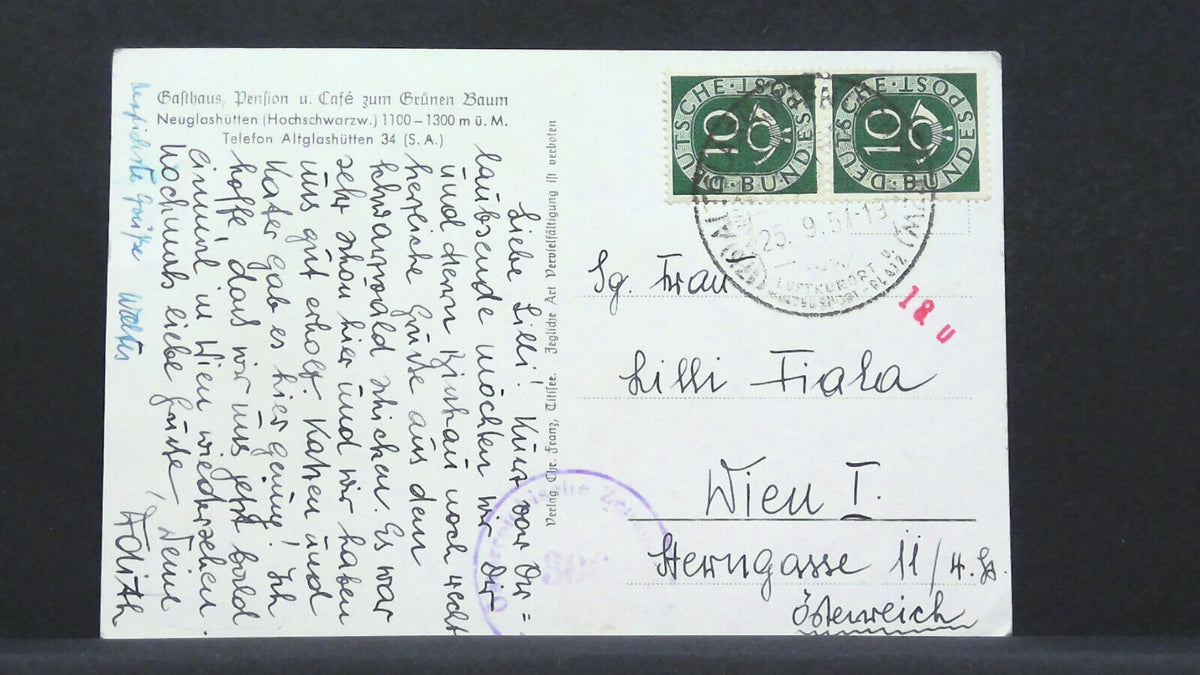 Gasthaus, Pension u. Café zum Grünen Baum
Neuglashütten (Hochschwarzw.) 1100–1300 m ü. M.
Telefon Altglashütten 34 (S.A.)
Liebe Lilli! Kurz vor Tor=
und Herrn noch recht
herzliche Grüße aus dem
Schwarzwald schicken. Es war
sehr schön hier und wir haben
uns gut erholt. Katzen und
Kater gab es hier genug! Ich
hoffe, dass wir uns jetzt bald
einmal in Wien wiedersehen.
Nochmals liebe Grüße, Deine
Edith
Grüße Walter
Verlag Chr. Franz, Titisee. Jegliche Art Vervielfältigung ist verboten
DEUTSCHE·BUNDESPOST
10
DEUTSCHE·BUNDESPOST
10
25.9.51-19
LUFTKURORT U.
18 U
Sg. Frau
Lilli Fiala
Wien I.
Sterngasse 11/4.
Österreich
Österreichische Zensur
366